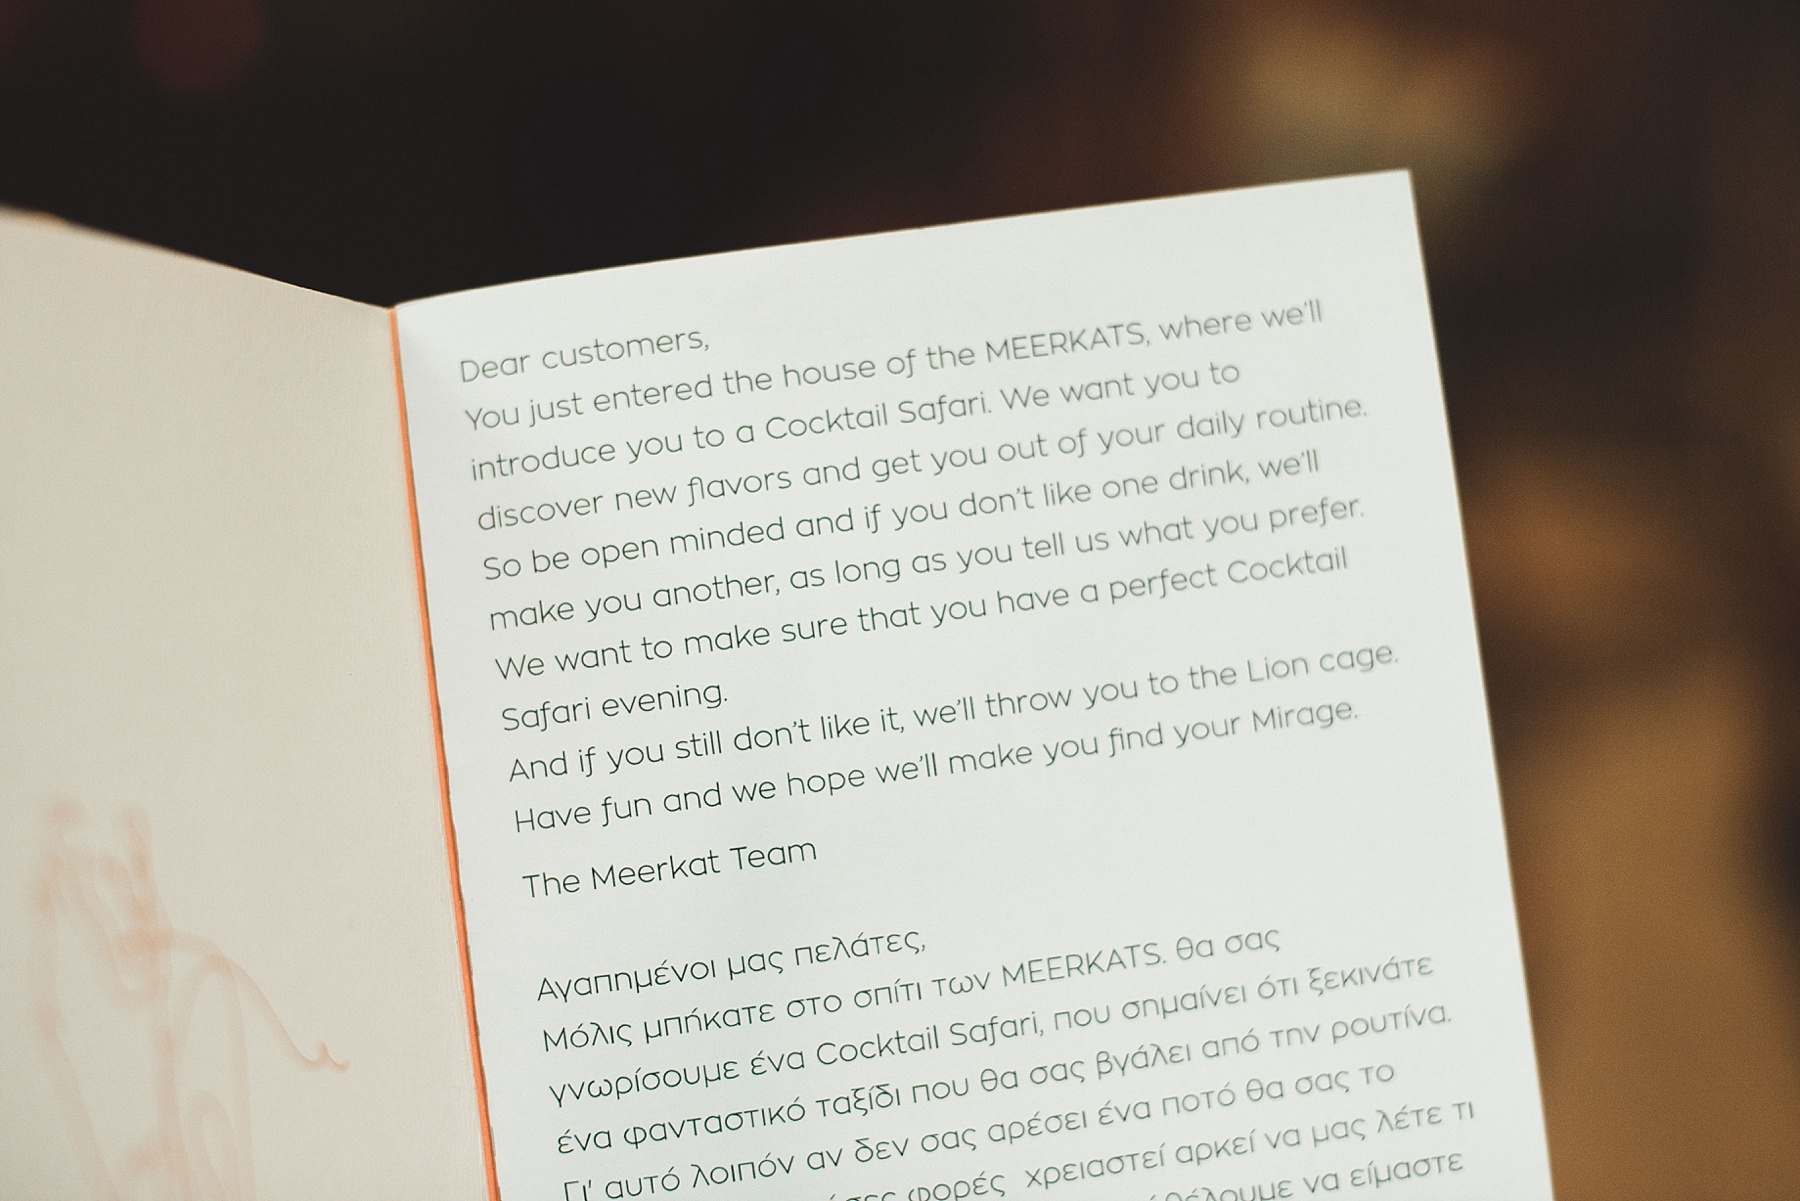 Dear customers,
You just entered the house of the MEERKATS, where we'll
introduce you to a Cocktail Safari. We want you to
discover new flavors and get you out of your daily routine.
So be open minded and if you don't like one drink, we'll
make you another, as long as you tell us what you prefer.
We want to make sure that you have a perfect Cocktail
Safari evening.
And if you still don't like it, we'll throw you to the Lion cage.
Have fun and we hope we'll make you find your Mirage.
The Meerkat Team
Αγαπημένοι μας πελάτες,
Μόλις μπήκατε στο σπίτι των MEERKATS. Θα σας
γνωρίσουμε ένα Cocktail Safari, που σημαίνει ότι ξεκινάτε
ένα φανταστικό ταξίδι που θα σας βγάλει από την ρουτίνα.
Γι' αυτό λοιπόν αν δεν σας αρέσει ένα ποτό θα σας το
φορές χρειαστεί αρκεί να μας λέτε τι
να είμαστε